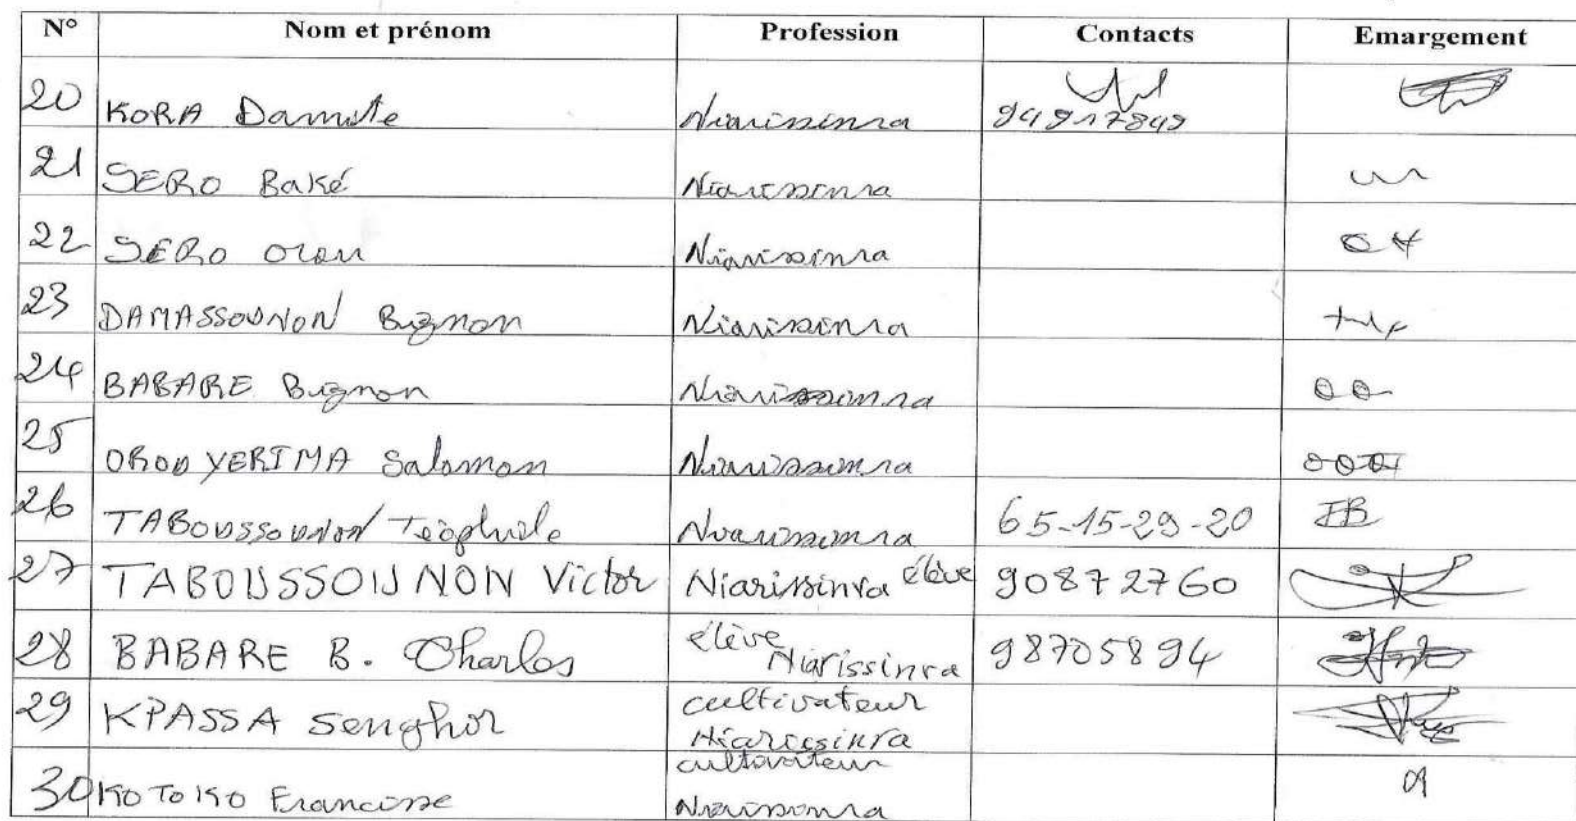 N° Nom et prénom Profession Contacts Emargement
20 KORA Niarissinra 94917849
21 SERO Baké Niarissinra
22 SERO Orou Niarissinra
23 DAMASSOUNON Bignon Niarissinra
24 BABARE Bignon Niarissinra
25 OROU YERIMA Salomon Niarissinra
26 TABOUSSOUNON Téophile Niarissinra 65-15-29-20 TB
27 TABOUSSOUNON Victor Niarissinra élève 90872760
28 BABARE B. Charles élève Niarissinra 98705894
29 KPASSA Senghor cultivateur
Niarissinra
30 KOTOKO cultivateur
Niarissinra